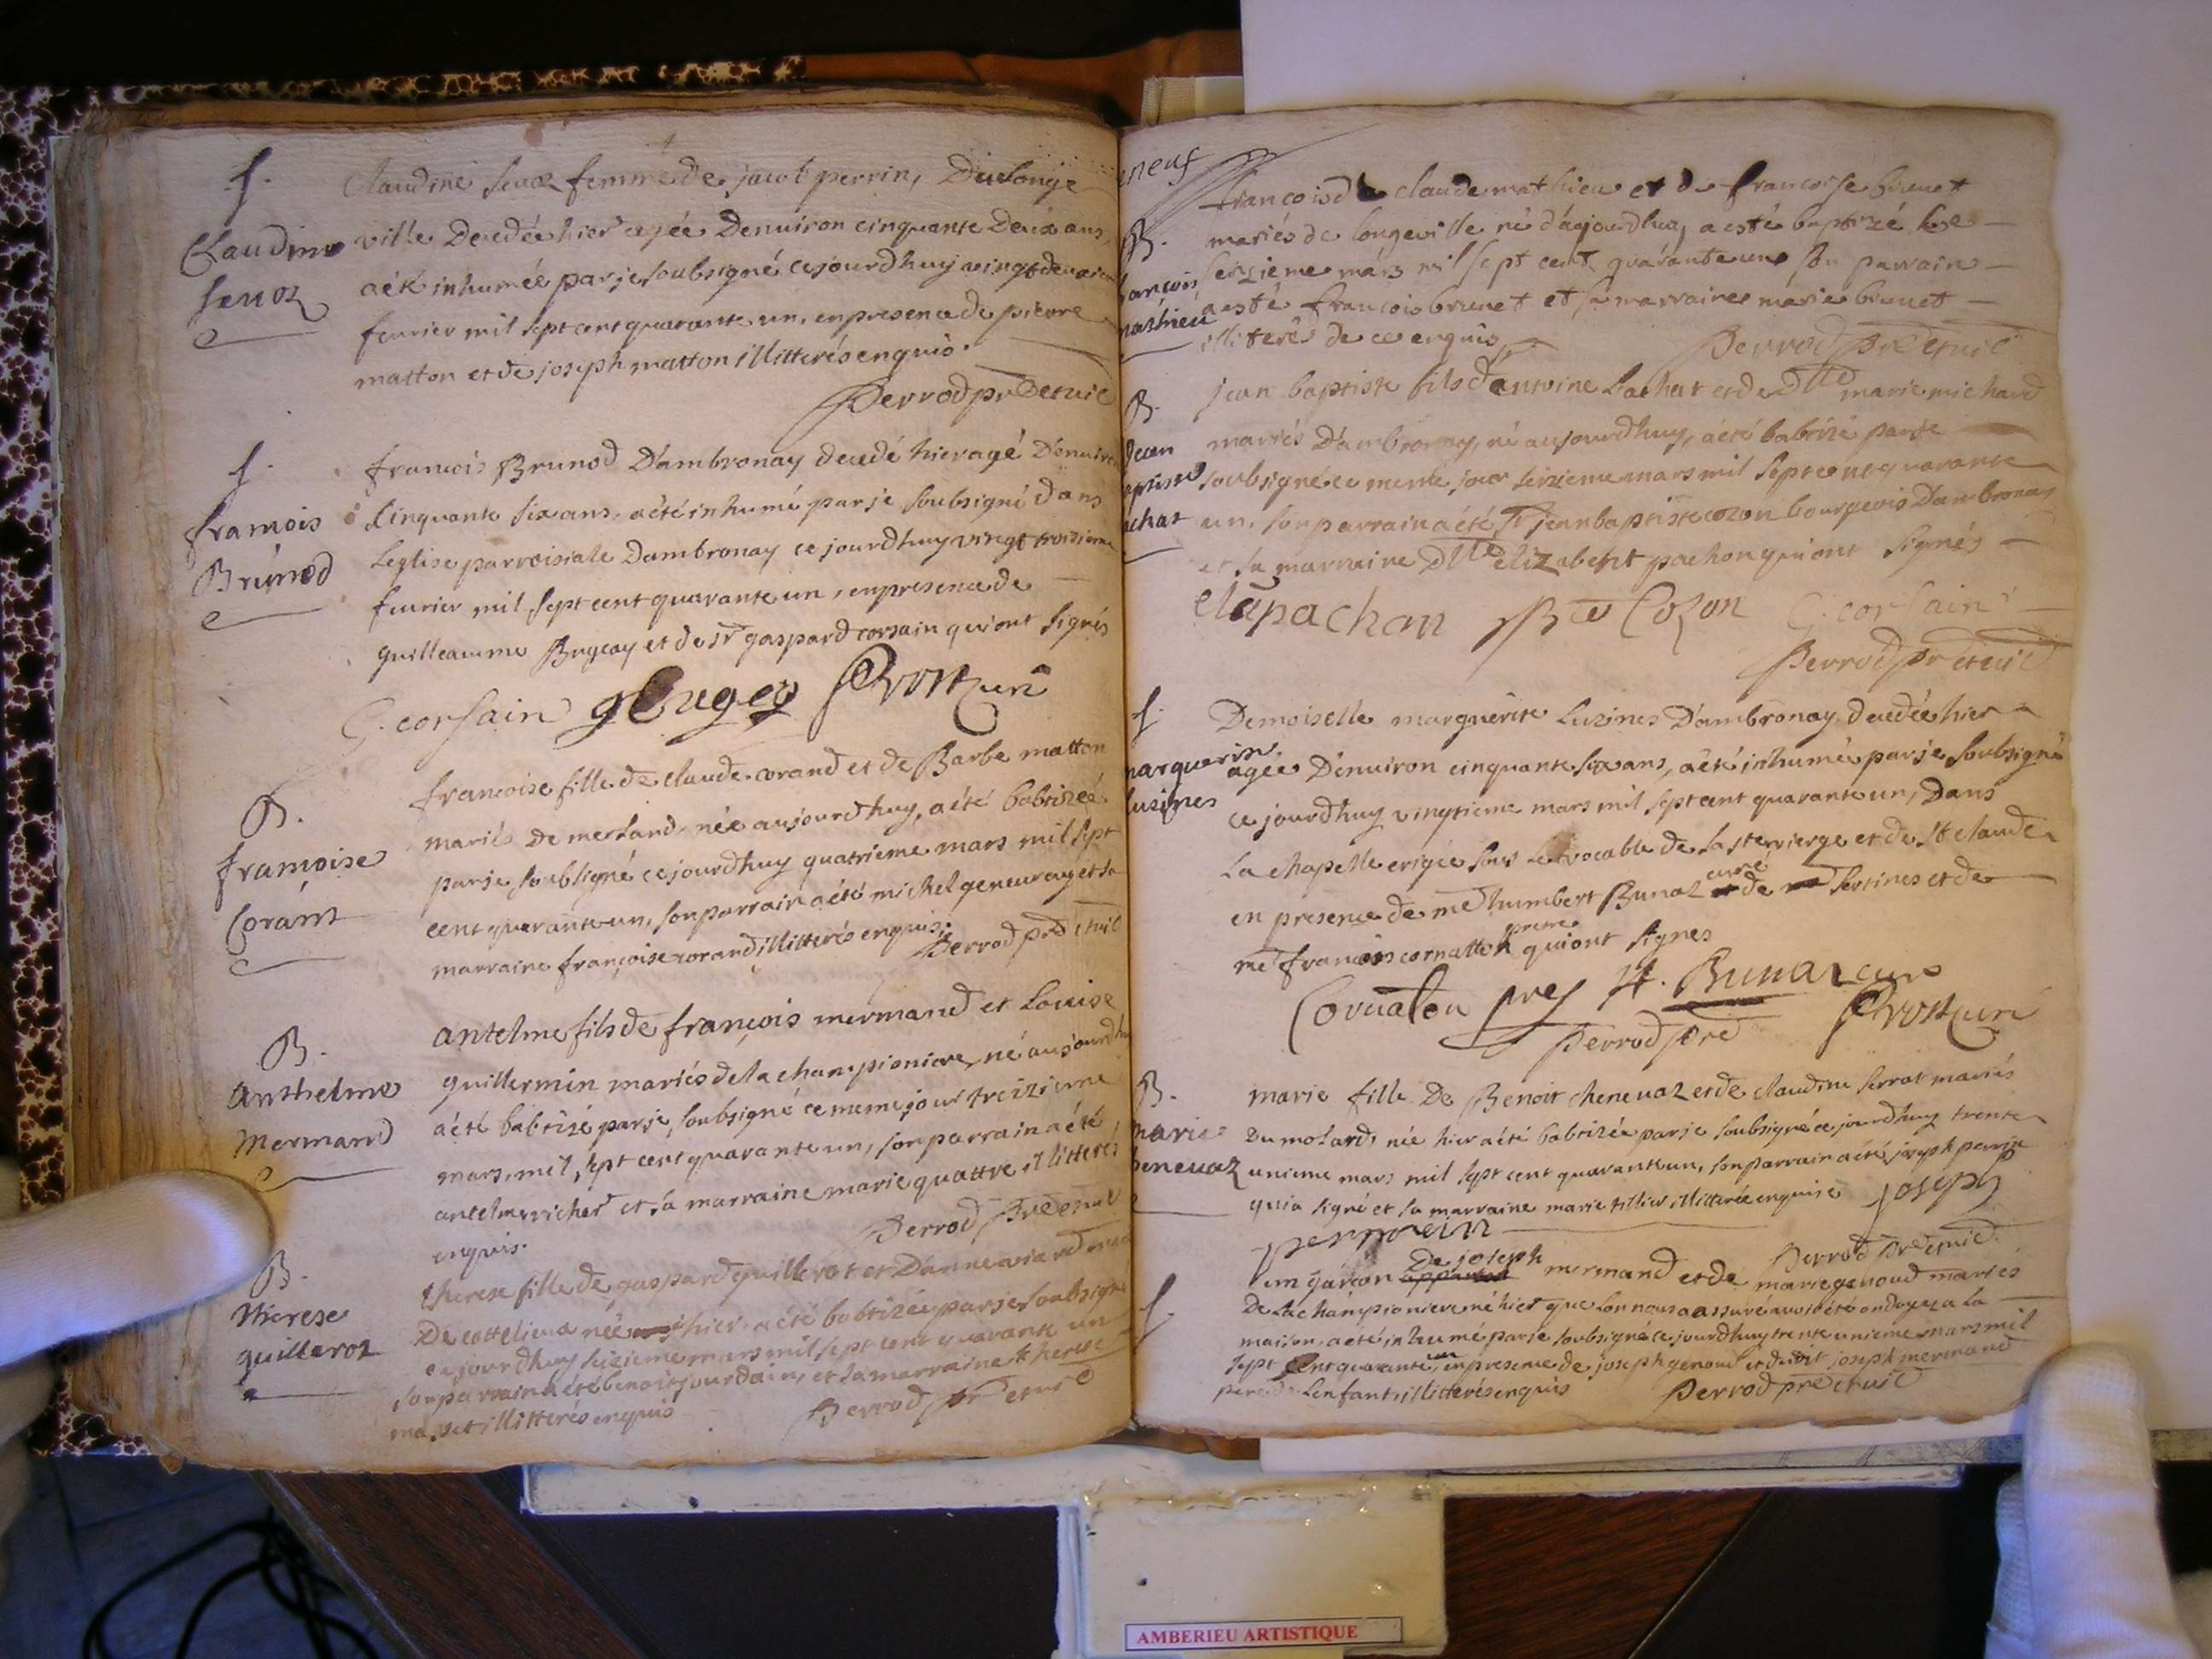 f.
Claudine
Senoz
Claudine Senoz femme de jacob perrin, De longe
ville Decedée hier agée Denuiron cinquante Deux ans,
a éte inhumée par je soubsigné ce jourdhuy vingt deuxieme
feurier mil sept cent quarante un, en presence de pierre
matton et de joseph matton illitterés enquis.
Perrod pr De tuil
f.
francois
Brunod
francois Brunod D'ambronay decedé hier agé D'enuiron
Cinquante six ans, a été inhumé par je soubsigné dans
Leglise parroissiale Dambronay ce jourdhuy vingt troisieme
feurier mil sept cent quarante un, en presence de
guilleaume Bugey et de sr gaspard corsain qui ont signés
G. corsain g Bugey Prost curé
B.
françoise
Corant
francoise fille de claude corand et de Barbe matton
mariés De merland, née aujourdhuy, a été babtizée
par je soubsigné ce jourdhuy quatrieme mars mil sept
cent quarante un, son parrain a été michel geneuray et sa
marraine françoise corand illitterés enquis
Perrod pre
B.
Anthelme
Mermand
antelme fils de françois mermand et Louise
guillermin mariés de la championiere, né aujourdhuy
a été babtizé par je, soubsigné ce meme jour treizieme
mars, mil, sept cent quarante un, son parrain a été
antelme richer et sa marraine marie quattre illitterés
enquis.
Perrod pre
B.
Therese
guilleroz
therese fille de gaspard guillerot et D'anne
De cottelieux née hier, a été babtizée par je soubsigné
ce jourdhuy seizieme mars mil sept cent quarante un
son parrain a été benoit jourdain, et sa marraine therese
illitterés enquis
Perrod pr
neuf
B.
francois
mathieu
francois de claude mathieu et de francoise brunet
mariés de longeville né d'aujourdhuy a esté baptizé le
seizieme mars mil sept cent quarante une son parrain
a esté francois brunet et sa marraine marie brunet
illiterés de ce enquis
Perrod pre
B.
Jean
chat
jean baptiste fils d'antoine Lachat et de dlle marie michard
mariés D'ambronay, né aujourdhuy, a été babtizé par je
soubsigné ce meme jour seizieme mars mil sept cent quarante
un, son parrain a été Sr jean baptiste cozon bourgeois D'ambronay
et sa marraine Dlle elizabeth pachon qui ont signés
pachon Cozon G. corsain
Perrod pr
f.
marguerite
Luzines
Demoiselle marguerite Luzines D'ambronay decedée hier
agée D'enuiron cinquante six ans, a été inhumée par je soubsigné
ce jourdhuy vingtieme mars mil sept cent quarante un, Dans
La chapelle erigée sous le vocable de la ste vierge et de st claude
en presence de me humbert Bunaz curé de sertines et de
me francois cornatton pretre qui ont signes
Cornaton H. Bunaz curé
Perrod pre Prost curé
B.
marie
chenevaz
marie fille De Benoit chenevaz et de claudine serrat mariés
Du molard, née hier a été babtizée par je soubsigné ce jourdhuy trente
unieme mars mil sept cent quarante un, son parrain a été joseph
qui a signé et sa marraine marie tillier illitterée enquise joseph
Perrod pre
f.
un garcon De joseph mermand et de marie genoud mariés
De La championiere né hier que l'on nous a assuré auoir été ondoyé a la
maison, a été inhumé par je soubsigné ce jourdhuy trente unieme mars mil
sept Cent quarante un en presence de joseph genoud et dudit joseph mermand
pere de Lenfant illitterés enquis Perrod pre
AMBERIEU ARTISTIQUE